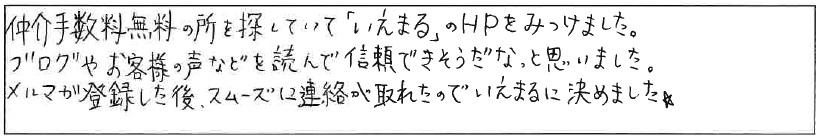 仲介手数料無料の所を探していて「いえまる」のHPをみつけました。
ブログやお客様の声などを読んで信頼できそうだなっと思いました。
メルマガ登録した後、スムーズに連絡が取れたのでいえまるに決めました。